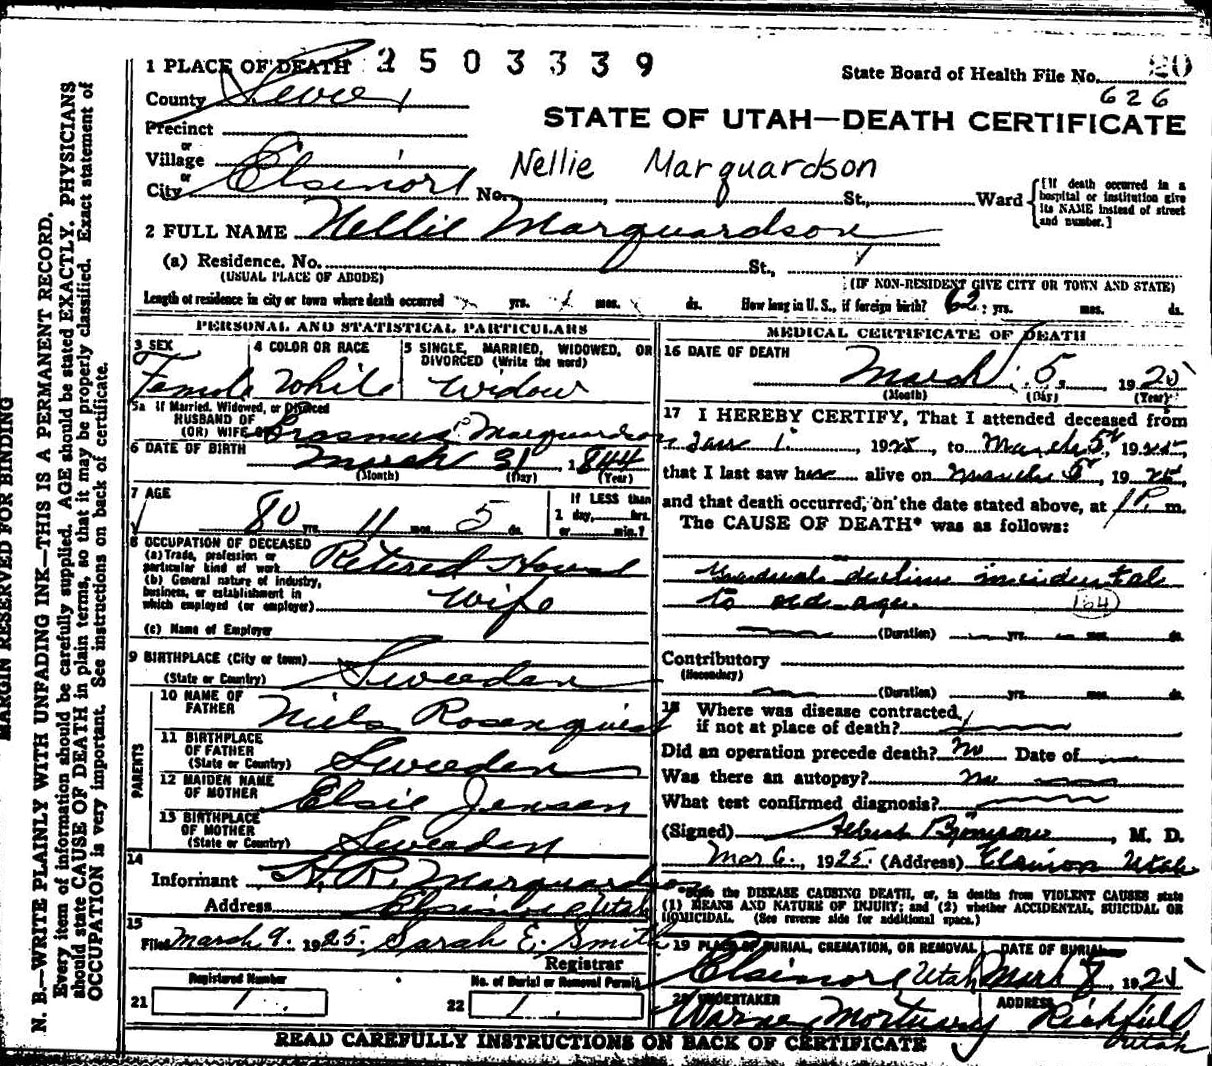 MARGIN RESERVED FOR BINDING
N. B.—WRITE PLAINLY WITH UNFADING INK—THIS IS A PERMANENT RECORD.
Every item of information should be carefully supplied. AGE should be stated EXACTLY. PHYSICIANS
should state CAUSE OF DEATH in plain terms, so that it may be properly classified. Exact statement of
OCCUPATION is very important. See instructions on back of certificate.
1 PLACE OF DEATH 2503339
State Board of Health File No. 20
626
County Sevier
STATE OF UTAH—DEATH CERTIFICATE
Precinct
or
Village
Nellie Marquardson
or
City Elsinore No. St., Ward
[If death occurred in a
hospital or institution give
its NAME instead of street
and number.]
2 FULL NAME Nellie Marquardson
(a) Residence. No. St.,
(USUAL PLACE OF ABODE) (IF NON-RESIDENT GIVE CITY OR TOWN AND STATE)
Length of residence in city or town where death occurred yrs. mos. ds. How long in U.S., if foreign birth? 62 yrs. mos. ds.
PERSONAL AND STATISTICAL PARTICULARS
3 SEX 4 COLOR OR RACE 5 SINGLE, MARRIED, WIDOWED, OR
DIVORCED (Write the word)
Female White Widow
5a If Married, Widowed, or Divorced
HUSBAND OF
(OR) WIFE OF Erasmus P Marquardson
6 DATE OF BIRTH March 31 1844
(Month) (Day) (Year)
7 AGE If LESS than
80 yrs. 11 mos. 5 ds. 1 day, hrs.
or min.?
8 OCCUPATION OF DECEASED
(a) Trade, profession or
particular kind of work Retired House
(b) General nature of industry,
business, or establishment in
which employed (or employer) wife
(c) Name of Employer
9 BIRTHPLACE (City or town)
(State or Country) Sweeden
PARENTS
10 NAME OF
FATHER Niels Rosenquist
11 BIRTHPLACE
OF FATHER
(State or Country) Sweeden
12 MAIDEN NAME
OF MOTHER Elsie Jensen
13 BIRTHPLACE
OF MOTHER
(State or Country) Sweeden
14
Informant H. R. Marquardson
Address Elsinore Utah
15
Filed March 9. 1925. Sarah E. Smith
Registrar
Registered Number No. of Burial or Removal Permit
21 1 22 1
MEDICAL CERTIFICATE OF DEATH
16 DATE OF DEATH
March 5, 1925
(Month) (Day) (Year)
17 I HEREBY CERTIFY, That I attended deceased from
Jan 1. 1925, to March 5, 1925,
that I last saw her alive on March 5, 1925,
and that death occurred, on the date stated above, at 1 P. m.
The CAUSE OF DEATH* was as follows:
Gradual decline incidental
to old age. 164
(Duration) yrs. mos. ds.
Contributory
(Secondary)
(Duration) yrs. mos. ds.
18 Where was disease contracted,
if not at place of death?
Did an operation precede death? No Date of
Was there an autopsy? No
What test confirmed diagnosis?
(Signed) M. D.
Mar 6., 1925. (Address) Elsinore Utah
the DISEASE CAUSING DEATH, or, in deaths from VIOLENT CAUSES state
(1) MEANS AND NATURE OF INJURY; and (2) whether ACCIDENTAL, SUICIDAL OR
HOMICIDAL. (See reverse side for additional space.)
19 PLACE OF BURIAL, CREMATION, OR REMOVAL DATE OF BURIAL
Elsinore Utah Mar 8, 1925
20 UNDERTAKER ADDRESS
Mortuary Richfield
Utah
READ CAREFULLY INSTRUCTIONS ON BACK OF CERTIFICATE